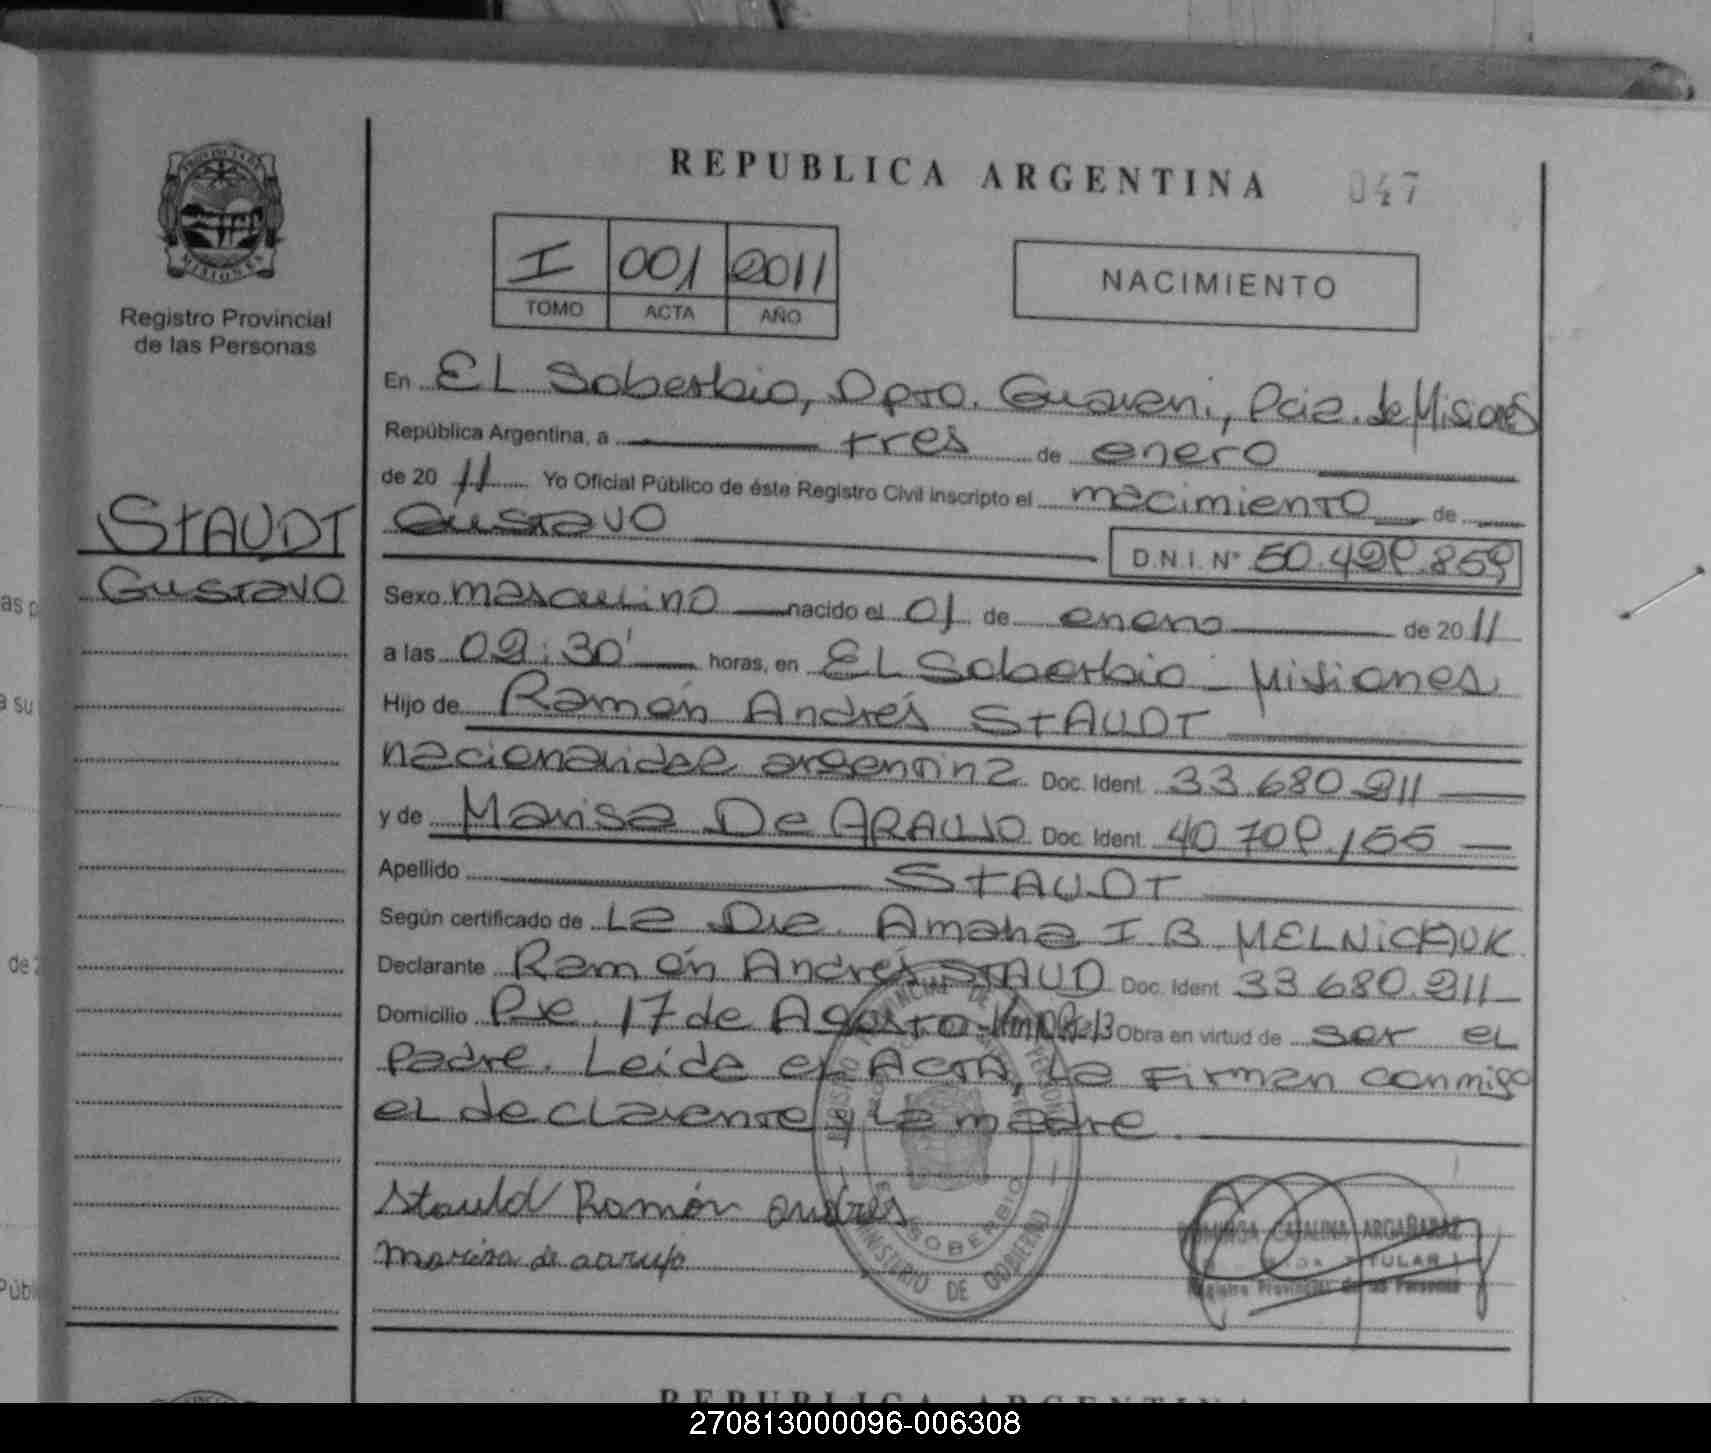 PROVINCIA DE
MISIONES
Registro Provincial
de las Personas
STAUDT
Gustavo
REPUBLICA ARGENTINA 047
I 001 2011
TOMO ACTA AÑO
NACIMIENTO
En EL Soberbio, Dpto. Guarani, Pcia. de Misiones
República Argentina, a tres de enero
de 20 11 Yo Oficial Público de éste Registro Civil inscripto el nacimiento de
Gustavo
D.N.I. Nº 50.429.859
Sexo masculino nacido el 01 de enero de 20 11
a las 02:30' horas, en EL Soberbio - Misiones
Hijo de Ramón Andrés STAUDT
nacionalidad argentina Doc. Ident. 33.680.211
y de Marisa De ARAUJO Doc. Ident. 40.709.155
Apellido STAUDT
Según certificado de La Dra. Amalia I B MELNICHUK
Declarante Ramón Andrés STAUD Doc. Ident 33.680.211
Domicilio Pje 17 de Agosto Obra en virtud de ser el
padre. Leida el ACTA, La Firman conmigo
el declarante y La madre.
Stauld Ramón andres
marisa de aarujo
SOBERBIO
MINISTERIO DE GOBIERNO
DOMINGA CATALINA ARGAÑARAZ
TITULAR
Registro Provincial de las Personas
de 2
REPUBLICA ARGENTINA
270813000096-006308